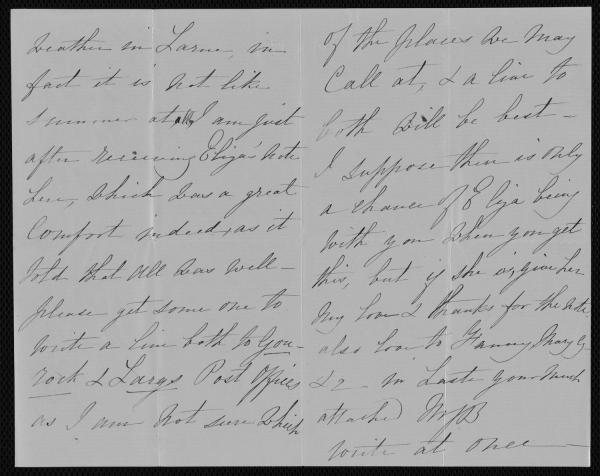 weather in Larne, in
fact it is not like
summer at all, I am just
after receiving Eliza's note
here, which was a great
Comfort indeed, as it
told that all was well –
please get some one to
write a line both to Gou-
rock & Largs Post Offices
as I am not sure which
of the places we may
Call at, & a line to
both will be best –
I suppose there is only
a chance of Eliza being
with you when you get
this, but if she is, give her
my love & thanks for the note
also love to Fanny, Mary
& in haste your much
attached WJB
write at once –